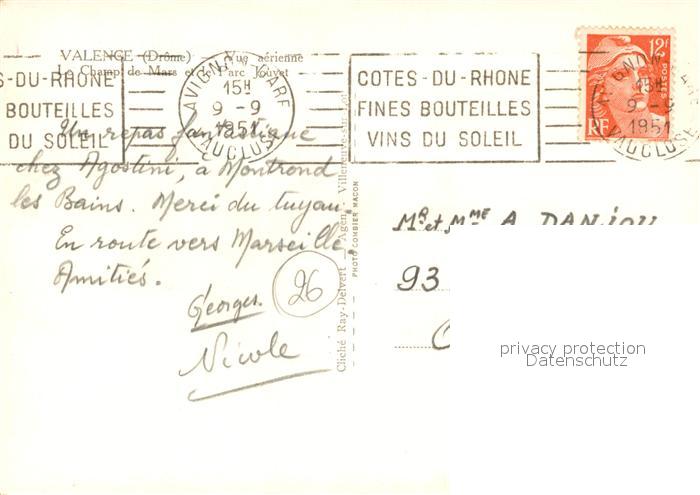 VALENCE (Drôme) — Vue aérienne
Le Champ de Mars et le Parc Jouvet
S-DU-RHONE
BOUTEILLES
DU SOLEIL
AVIGNON GARE
15H
9 - 9
1951
VAUCLUSE
COTES-DU-RHONE
FINES BOUTEILLES
VINS DU SOLEIL
12F
POSTES
RF
15H
9 - 9
1951
VAUCLUSE
Un repas fantastique
chez Agostini, à Montrond
les Bains. Merci du tuyau.
En route vers Marseille.
Amitiés.
Georges.
Nicole
26
Cliché Ray-Delvert — Agen, Villeneuve-sur-Lot
PHOTO COMBIER MACON
Mr et Mme A. DANJOU
93
privacy protection
Datenschutz